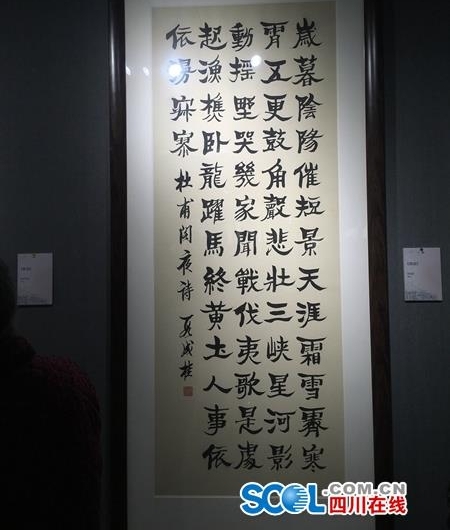 歲暮陰陽催短景天涯霜雪霽寒
霄五更鼓角聲悲壯三峽星河影
動搖埜哭幾家聞戰伐夷歌是處
起漁樵臥龍躍馬終黃土人事依
依寂寥 杜甫閣夜詩
SCOL.COM.CN
四川在线